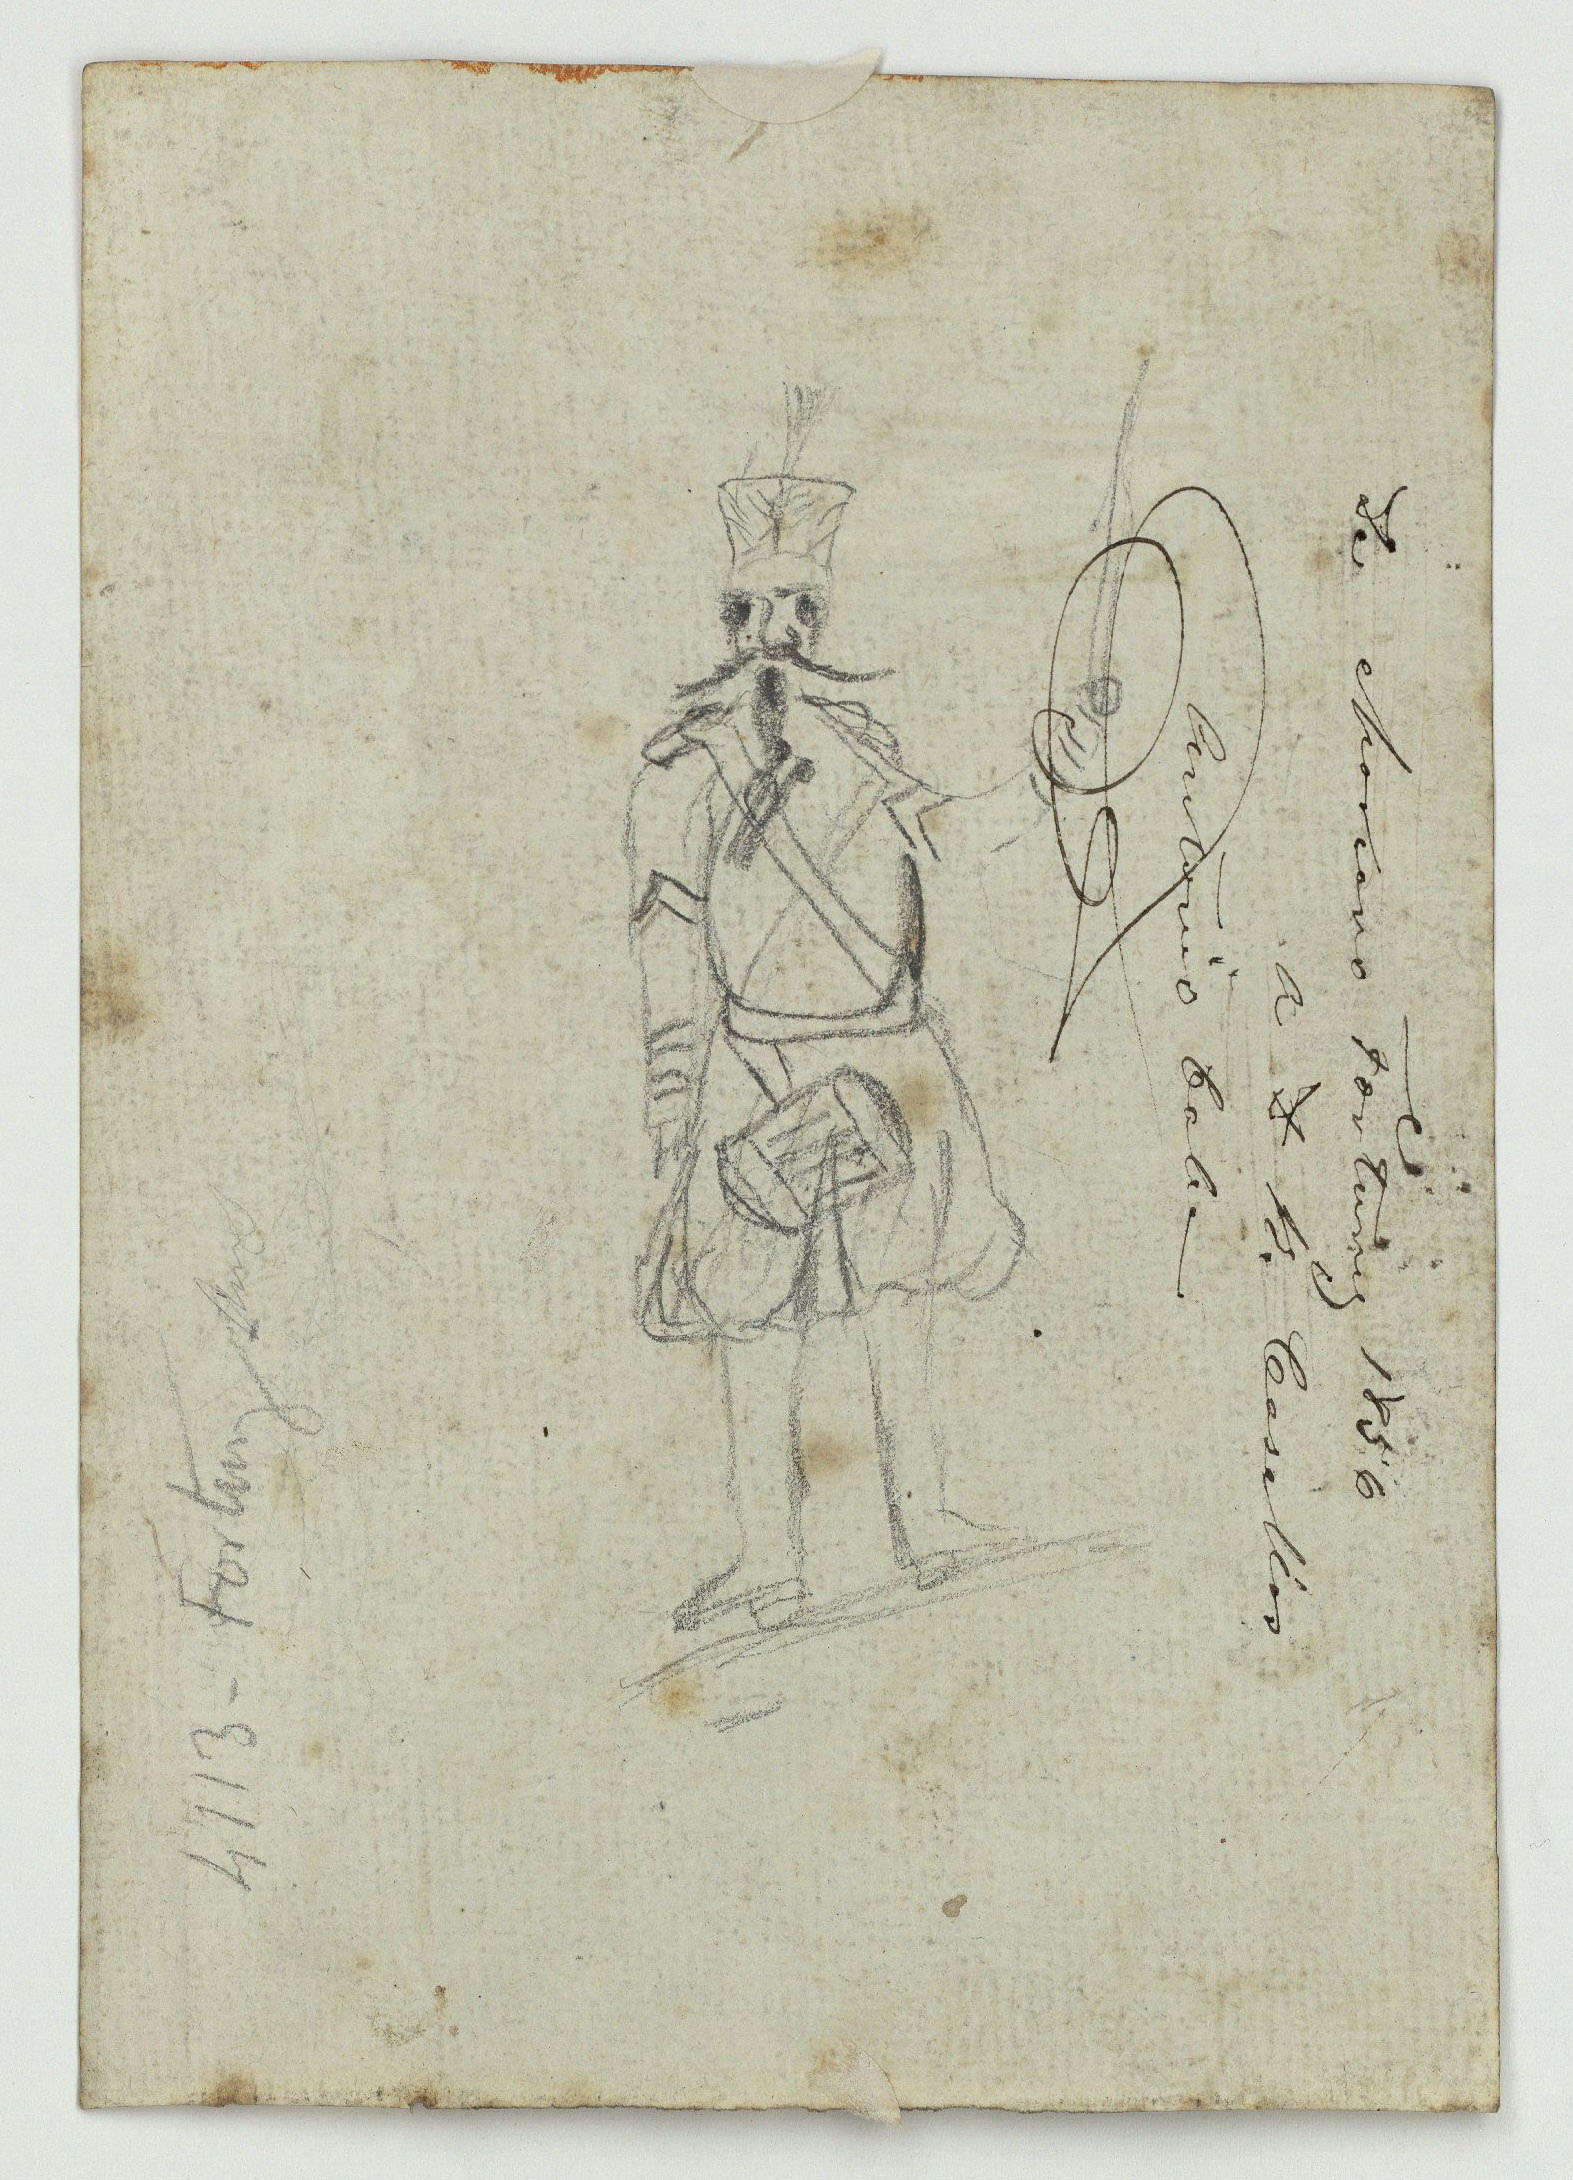 De Mariano Fortuny 1856
a D B. Casellas
Antonio
4113 - Fortuny